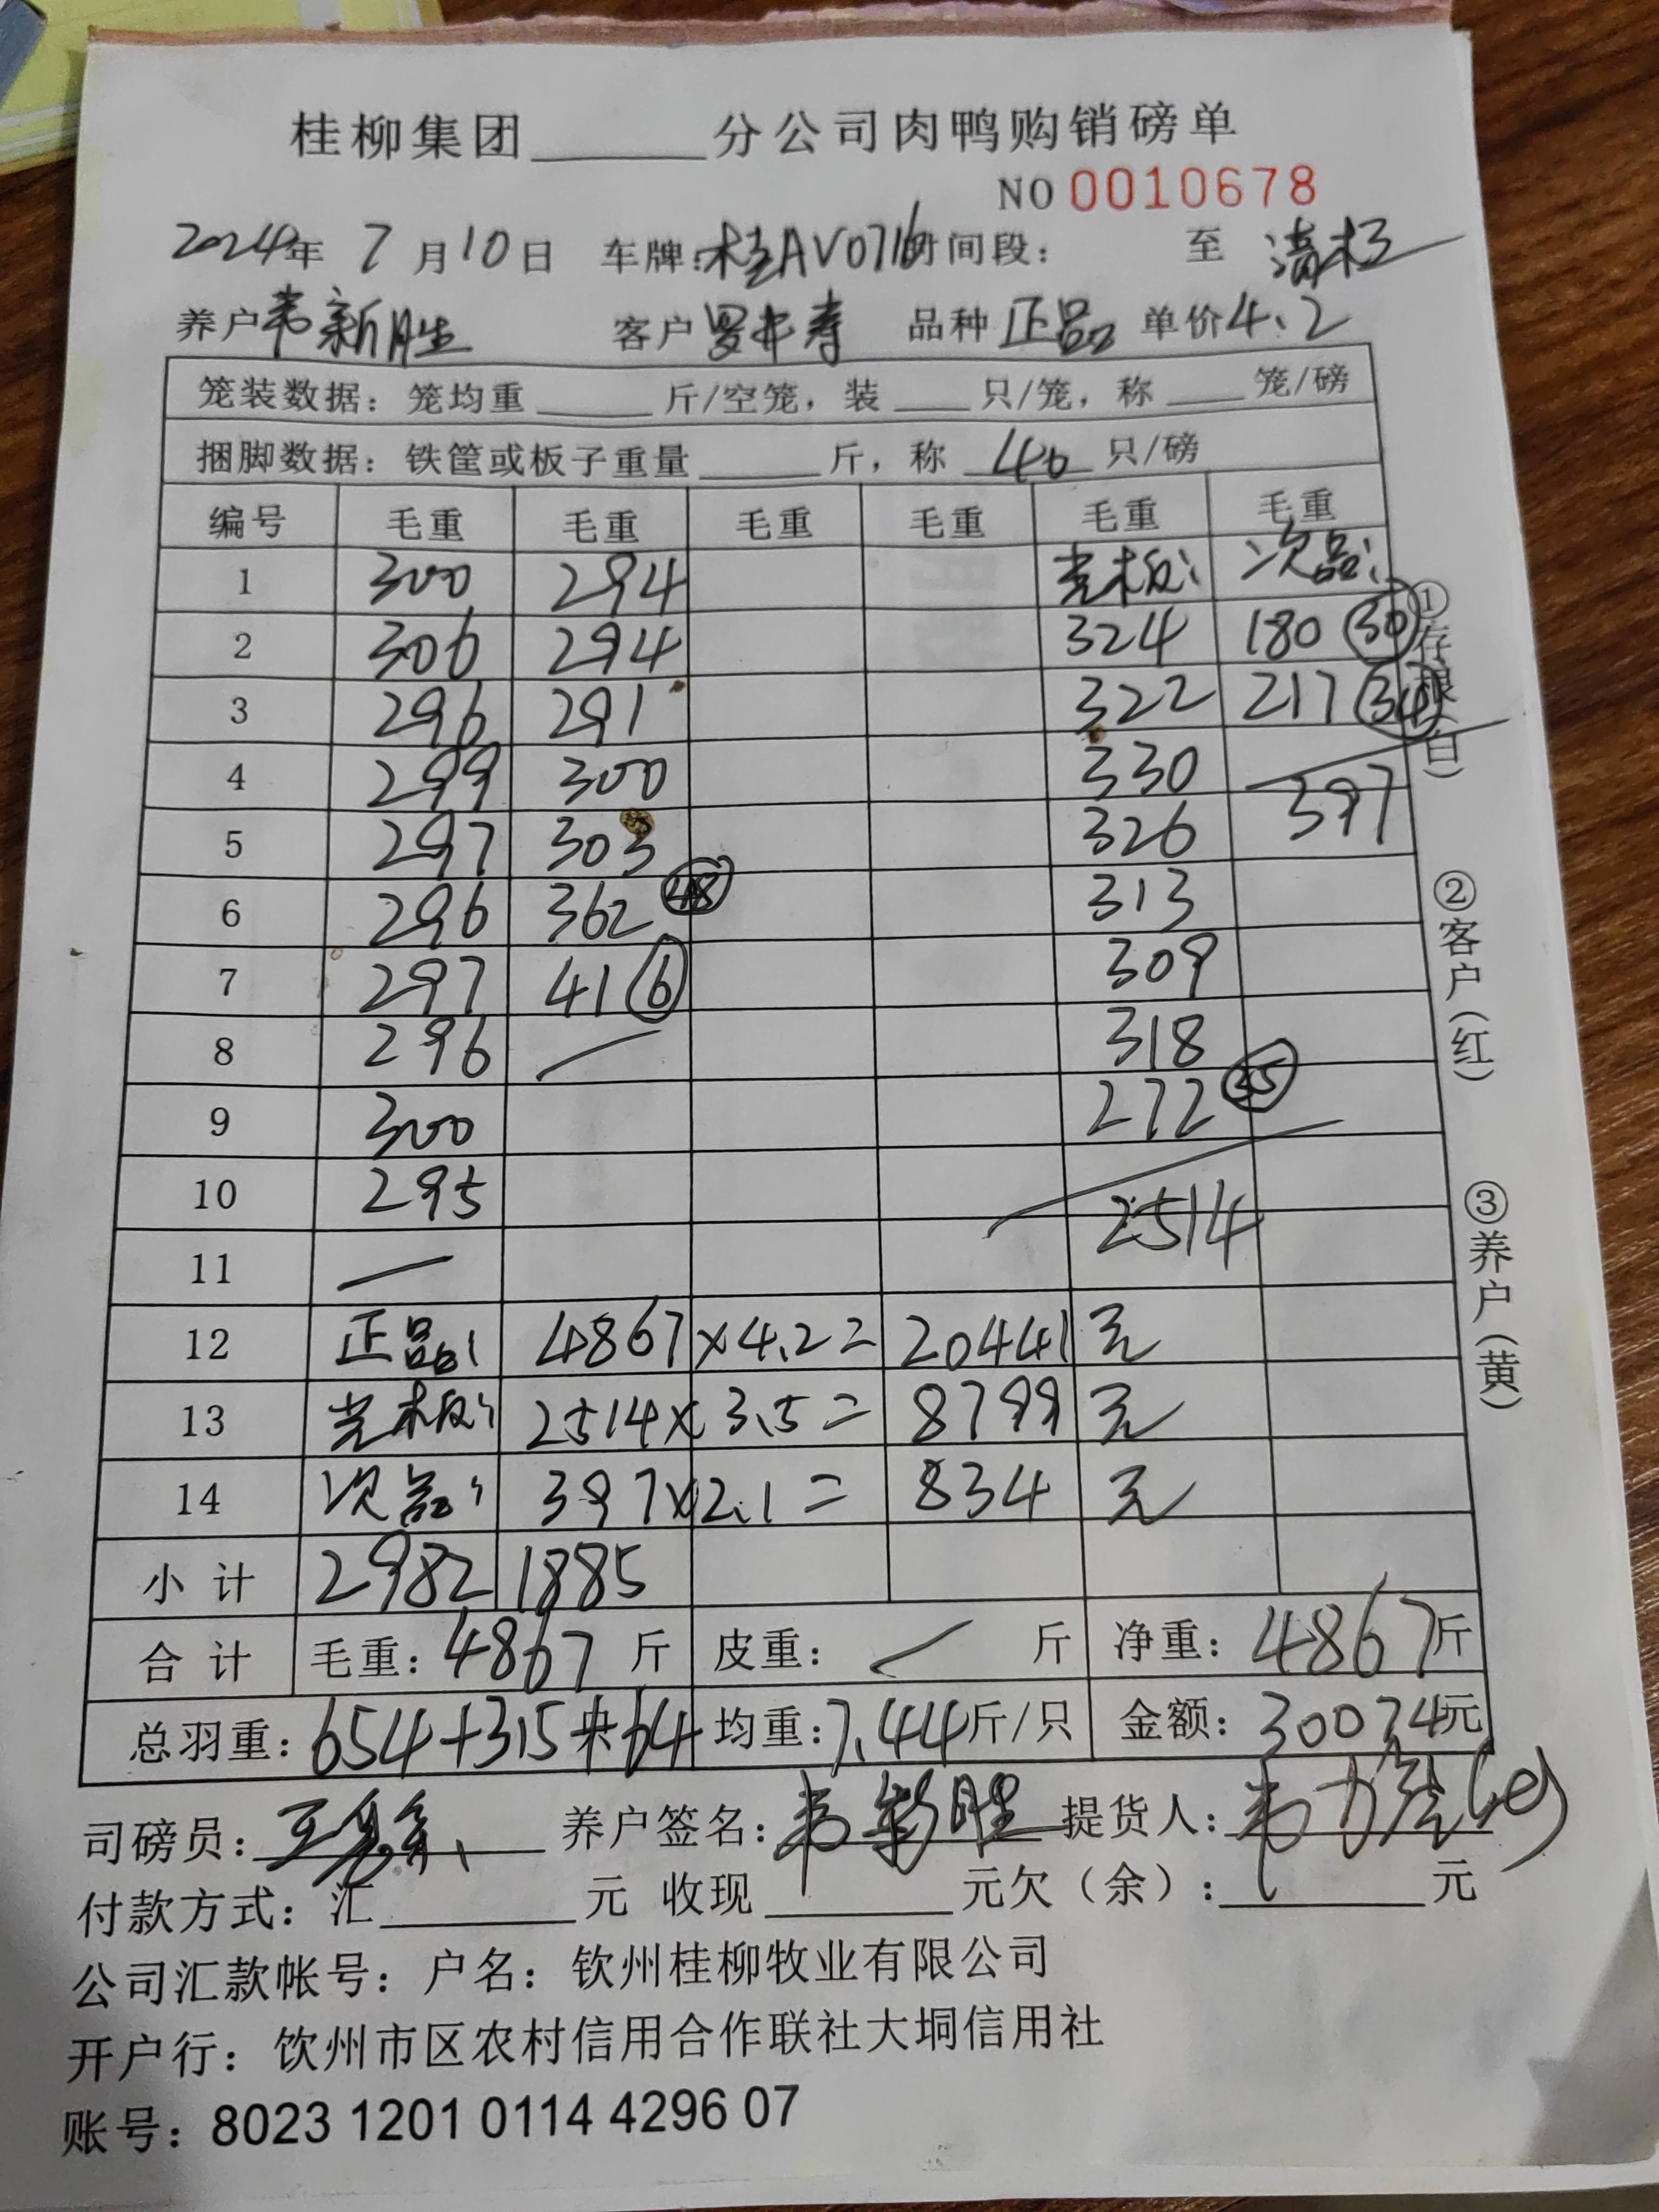 桂柳集团______分公司肉鸭购销磅单
NO 0010678
2024年 7月10日 车牌:桂AV0716 时间段: 至 清杉
养户韦新胜 客户罗 寿 品种 正品 单价4.2
笼装数据：笼均重____斤/空笼，装___只/笼，称___笼/磅
捆脚数据：铁筐或板子重量____斤，称 46 只/磅
编号 毛重 毛重 毛重 毛重 毛重 毛重
1 300 294 光板: 次品:
2 306 294 324 180 ㉚
3 296 291 322 217 ㉞
4 299 300 330
5 297 303 326 397
6 296 362 ㊽ 313
7 297 41 ⑥ 309
8 296 318
9 300 272 ㉟
10 295 2514
11 一
12 正品: 4867 ×4.2= 20441 元
13 光板: 2514× 3.5= 8799 元
14 次品: 397× 2.1= 834 元
小计 2982 1885
合计 毛重：4867 斤 皮重： / 斤 净重：4867斤
总羽重：654+315+64 均重：7.44斤/只 金额：30074元
司磅员： 养户签名：韦新胜 提货人：韦
付款方式：汇______元 收现______元欠（余）：______元
公司汇款帐号：户名：钦州桂柳牧业有限公司
开户行：钦州市区农村信用合作联社大垌信用社
账号：8023 1201 0114 4296 07
①存根（白）
②客户（红）
③养户（黄）